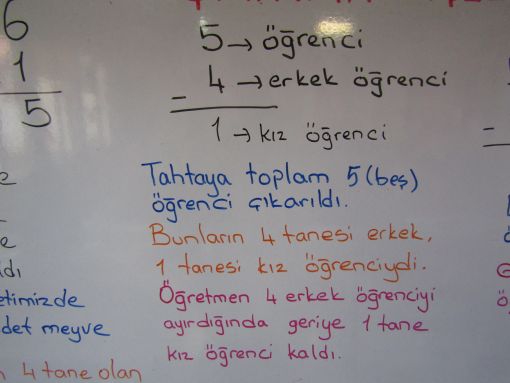 6
1
5
5 → öğrenci
- 4 → erkek öğrenci
1 → kız öğrenci
Tahtaya toplam 5 (beş)
öğrenci çıkarıldı.
Bunların 4 tanesi erkek,
1 tanesi kız öğrenciydi.
Öğretmen 4 erkek öğrenciyi
ayırdığında geriye 1 tane
kız öğrenci kaldı.
meyve
4 tane olan